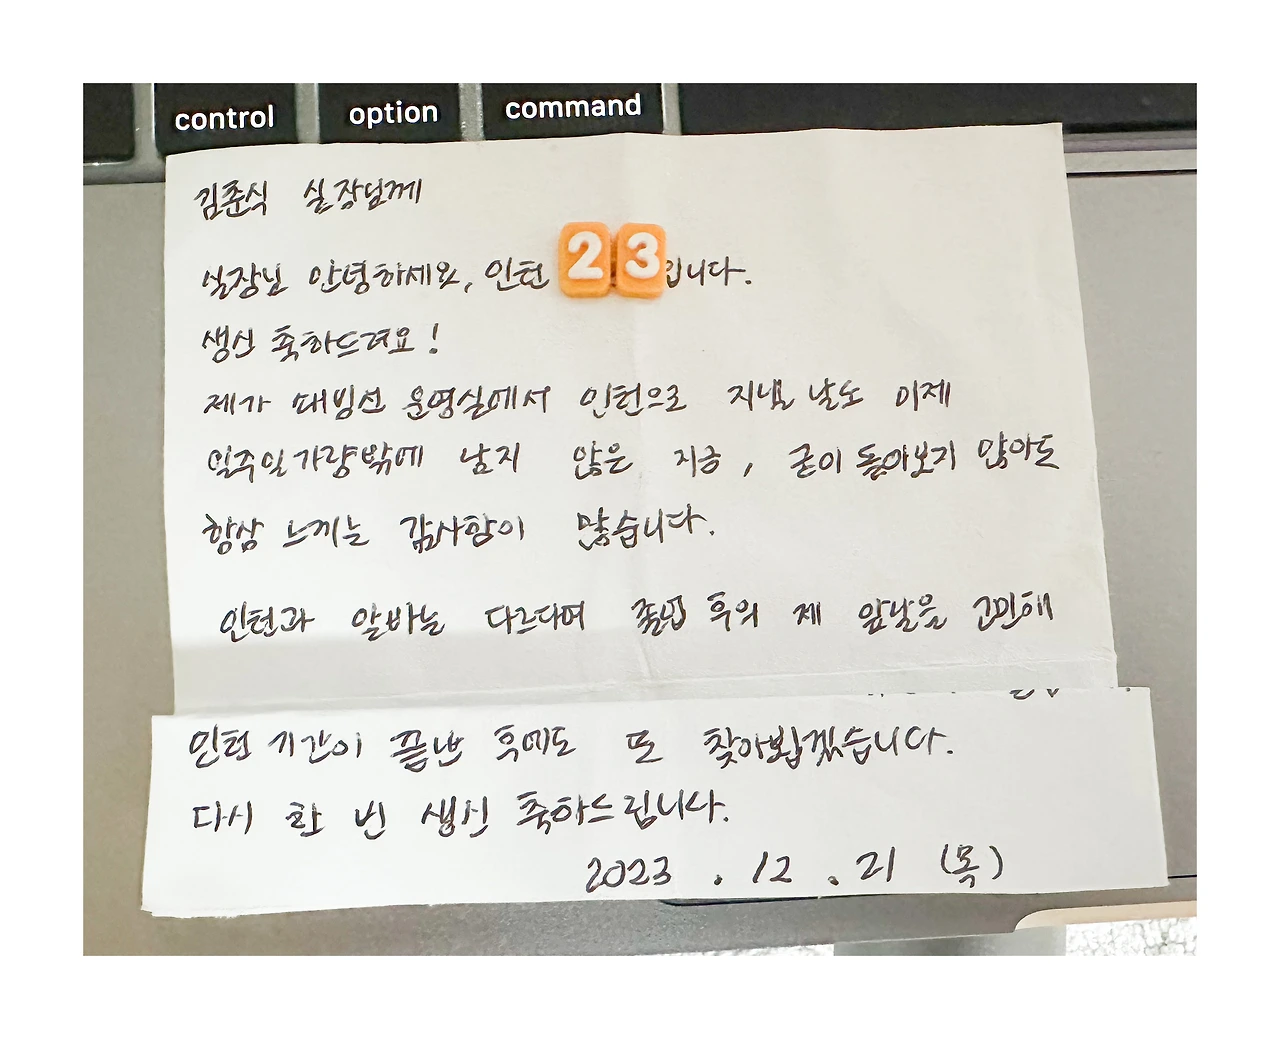 control option command
김준식 실장님께
실장님 안녕하세요, 인턴 23입니다.
생신 축하드려요!
제가 대빙선 운영실에서 인턴으로 지낼 날도 이제
일주일가량밖에 남지 않은 지금, 굳이 돌아보지 않아도
항상 느끼는 감사함이 많습니다.
인턴과 알바는 다르다며 졸업 후의 제 앞날을 고민해
인턴 기간이 끝난 후에도 또 찾아뵙겠습니다.
다시 한 번 생신 축하드립니다.
2023 . 12 . 21 (목)